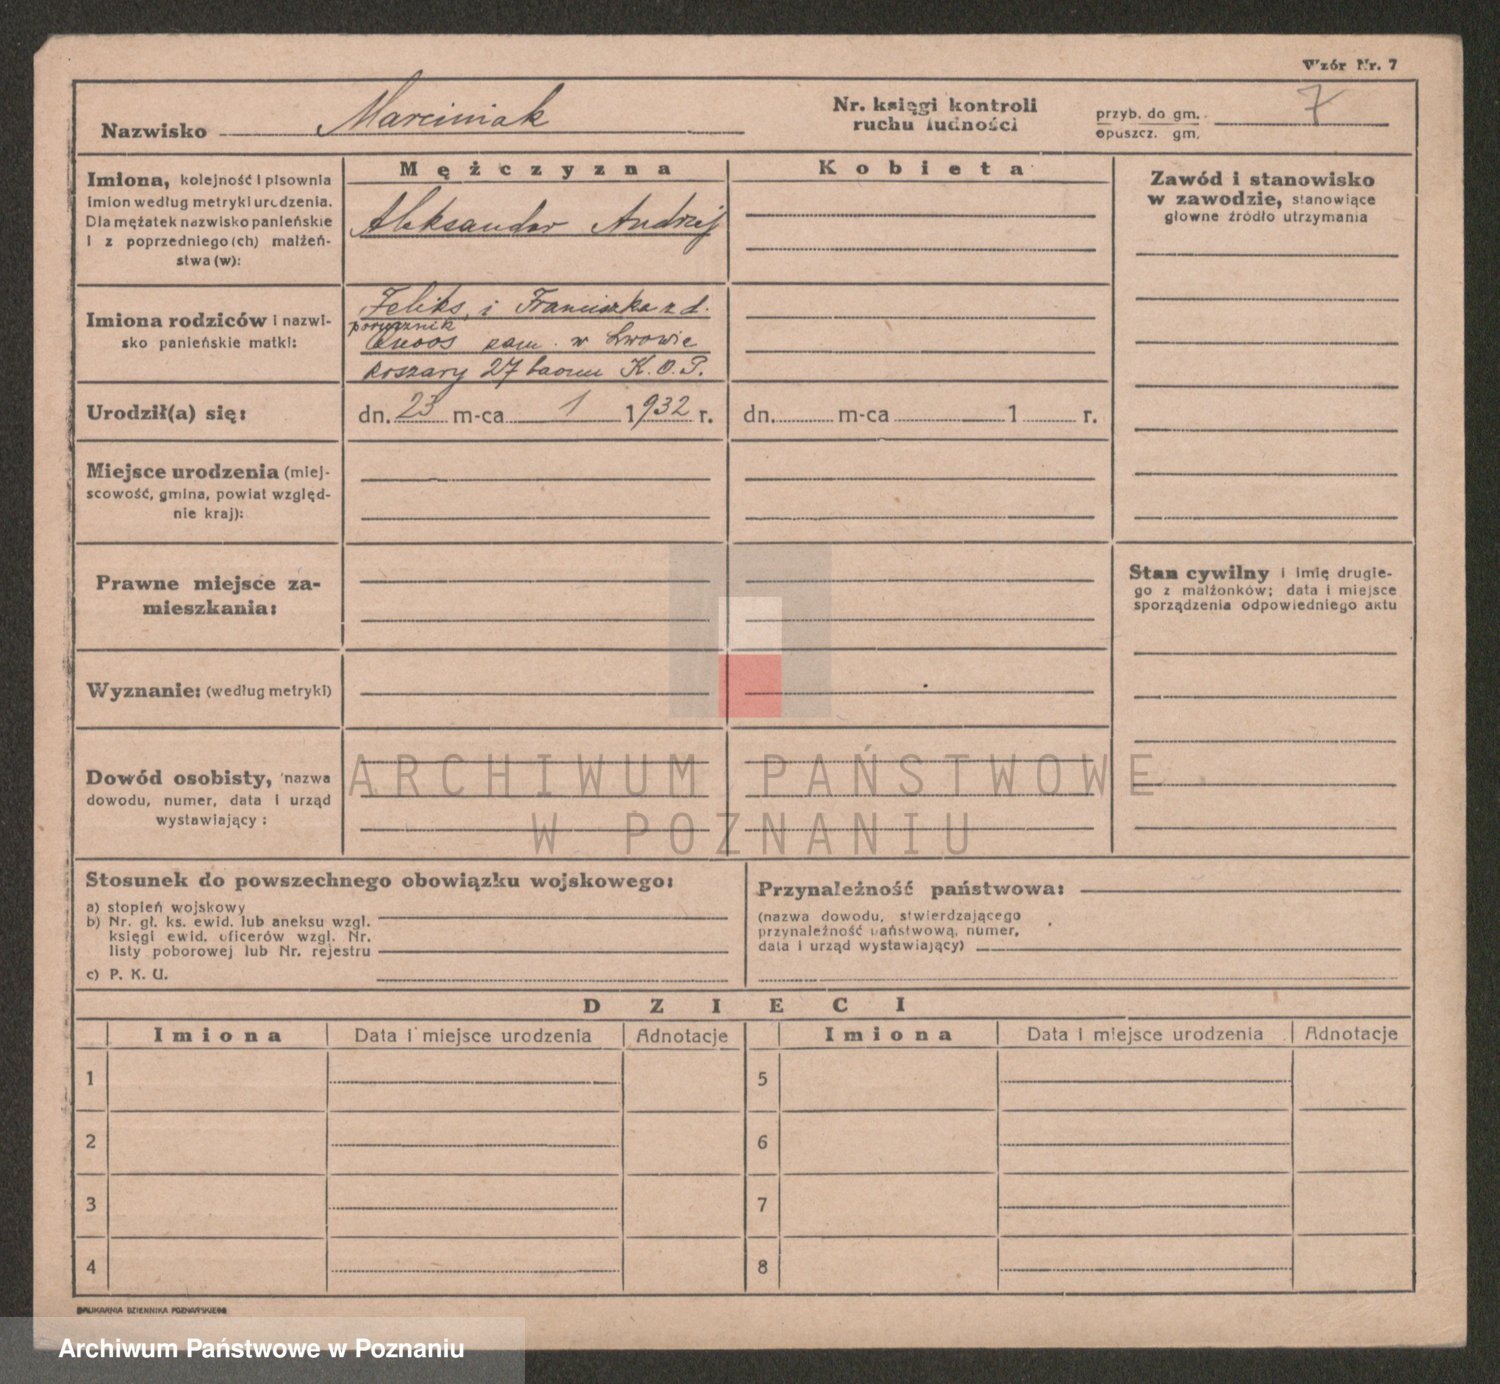 Wzór Nr. 7
Nazwisko Marciniak
Nr. księgi kontroli
ruchu ludności
przyb. do gm.
opuszcz. gm.
7
Imiona, kolejność i pisownia
imion według metryki urodzenia.
Dla mężatek nazwisko panieńskie
i z poprzedniego (ch) małżeń-
stwa (w):
Mężczyzna
Aleksander Andrzej
Kobieta
Zawód i stanowisko
w zawodzie, stanowiące
główne źródło utrzymania
Imiona rodziców i nazwi-
sko panieńskie matki:
Feliks i Franciszka z d.
porucznik
zam. w Lwowie
koszary 27 baonu K.O.P.
Urodził(a) się:
dn. 23 m-ca 1 1932 r.
dn. m-ca 1 r.
Miejsce urodzenia (miej-
scowość, gmina, powiat względ-
nie kraj):
Prawne miejsce za-
mieszkania:
Stan cywilny i imię drugie-
go z małżonków; data i miejsce
sporządzenia odpowiedniego aktu
Wyznanie: (według metryki)
Dowód osobisty, nazwa
dowodu, numer, data i urząd
wystawiający :
ARCHIWUM PAŃSTWOWE
W POZNANIU
Stosunek do powszechnego obowiązku wojskowego:
a) stopień wojskowy
b) Nr. gł. ks. ewid. lub aneksu wzgl.
księgi ewid. oficerów wzgl. Nr.
listy poborowej lub Nr. rejestru
c) P. K. U.
Przynależność państwowa:
(nazwa dowodu, stwierdzającego
przynależność państwową, numer,
data i urząd wystawiający)
DZIECI
Imiona Data i miejsce urodzenia Adnotacje Imiona Data i miejsce urodzenia Adnotacje
1 5
2 6
3 7
4 8
DRUKARNIA DZIENNIKA POZNAŃSKIEGO
Archiwum Państwowe w Poznaniu